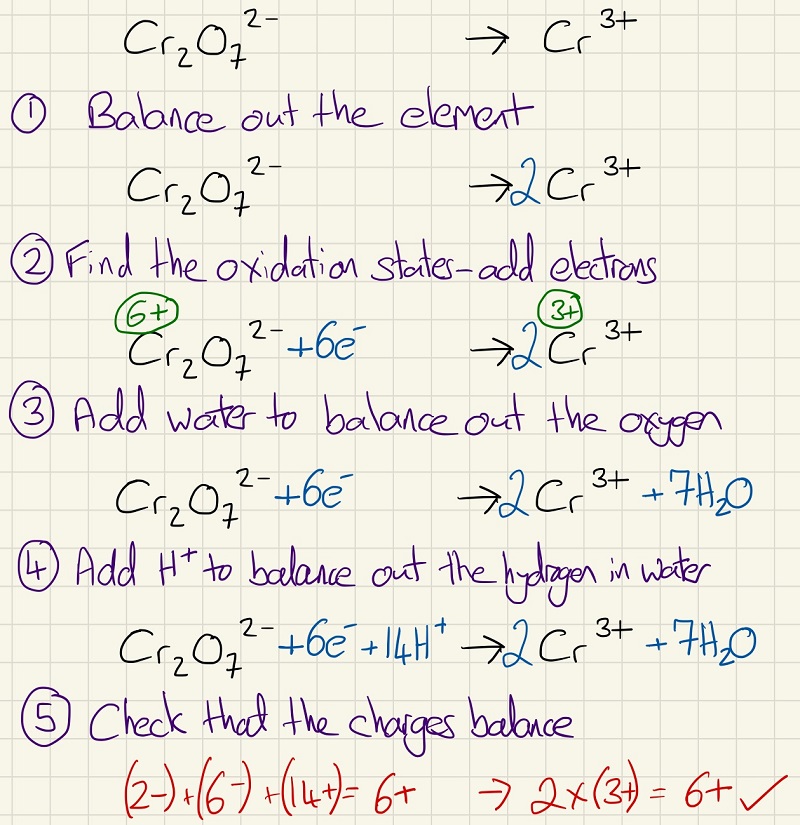 Cr₂O₇²⁻ → Cr³⁺
① Balance out the element
Cr₂O₇²⁻ → 2Cr³⁺
② Find the oxidation states - add electrons
6+ 3+
Cr₂O₇²⁻ + 6e⁻ → 2Cr³⁺
③ Add water to balance out the oxygen
Cr₂O₇²⁻ + 6e⁻ → 2Cr³⁺ + 7H₂O
④ Add H⁺ to balance out the hydrogen in water
Cr₂O₇²⁻ + 6e⁻ + 14H⁺ → 2Cr³⁺ + 7H₂O
⑤ Check that the charges balance
(2-)+(6-)+(14+)= 6+ → 2×(3+) = 6+ ✓